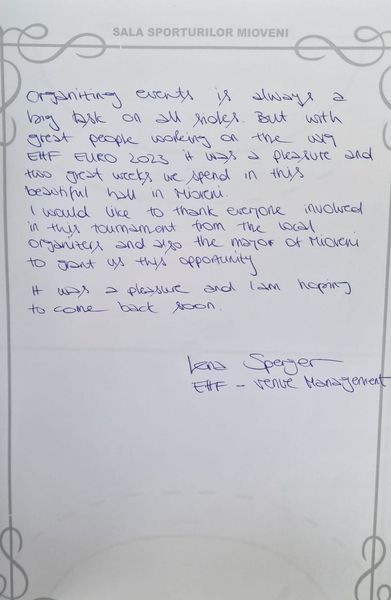 SALA SPORTURILOR MIOVENI
Organizing events is always a
big task on all sides. But with
great people working on the W19
EHF EURO 2023 it was a pleasure and
two great weeks we spend in this
beautiful hall in Mioveni.
I would like to thank everyone involved
in this tournament from the local
organizers and also the mayor of Mioveni
to grant us this opportunity
It was a pleasure and I am hoping
to come back soon.
Lena Sperger
EHF - Venue Management